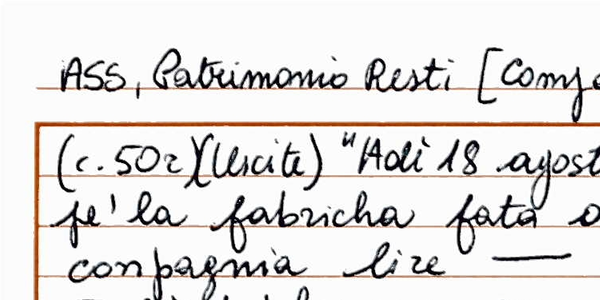 ASS, Patrimonio Resti [Comp
(c. 50r)(Uscite) "Adì 18 agost
pe' la fabricha fata
compagnia lire —